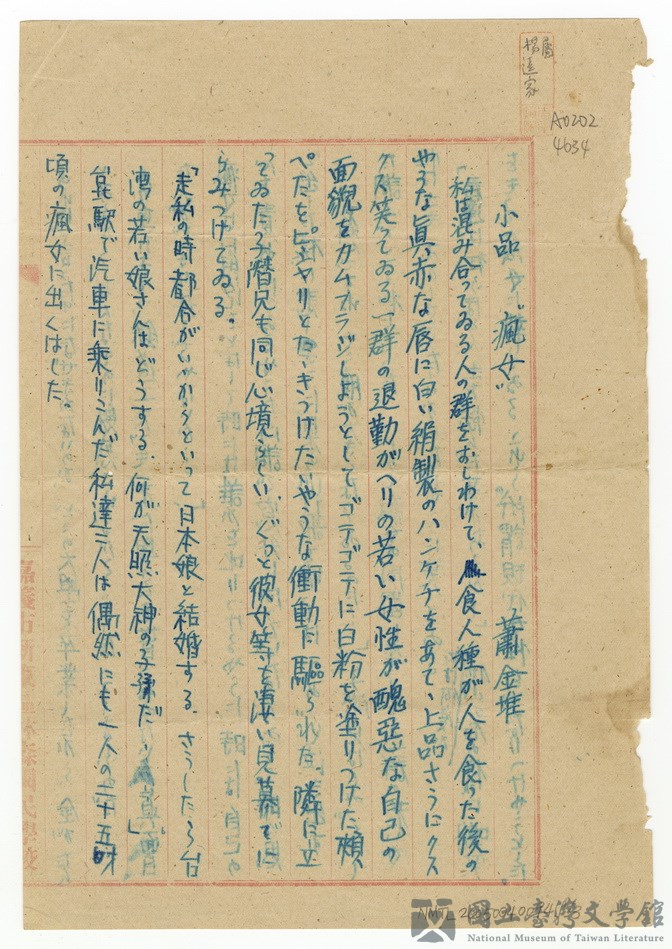 小品 “瘋女” 蕭金堆
「私は混み合ってゐる人の群をおしわけて、食人種が人を食った後の
やうな真赤な唇に白い絹製のハンケチをあて、上品さうにクス
クス笑ってゐる一群の退勤がへりの若い女性が醜惡な自己の
面貌をカムフラジしようとしてゴテゴテに白粉を塗りつけた頰
ぺたをピシヤリとたゝきつけたいやうな衝動に駆られた。隣に立
ってゐた潛兄も同じ心境らしい、ぐっと彼女等を凄い見幕でに
らみつけてゐる。
「走私の時都合がいゝからといって日本娘と結婚する。さうしたら台
湾の若い娘さんはどうする、何が天照大神の子孫だ」
駅で汽車に乗りこんだ私達二人は偶然にも一人の二十五时
頃の瘋女に出くはした。
楊逵家屬
A0202
4034
NMTL
國立臺灣文學館
National Museum of Taiwan Literature